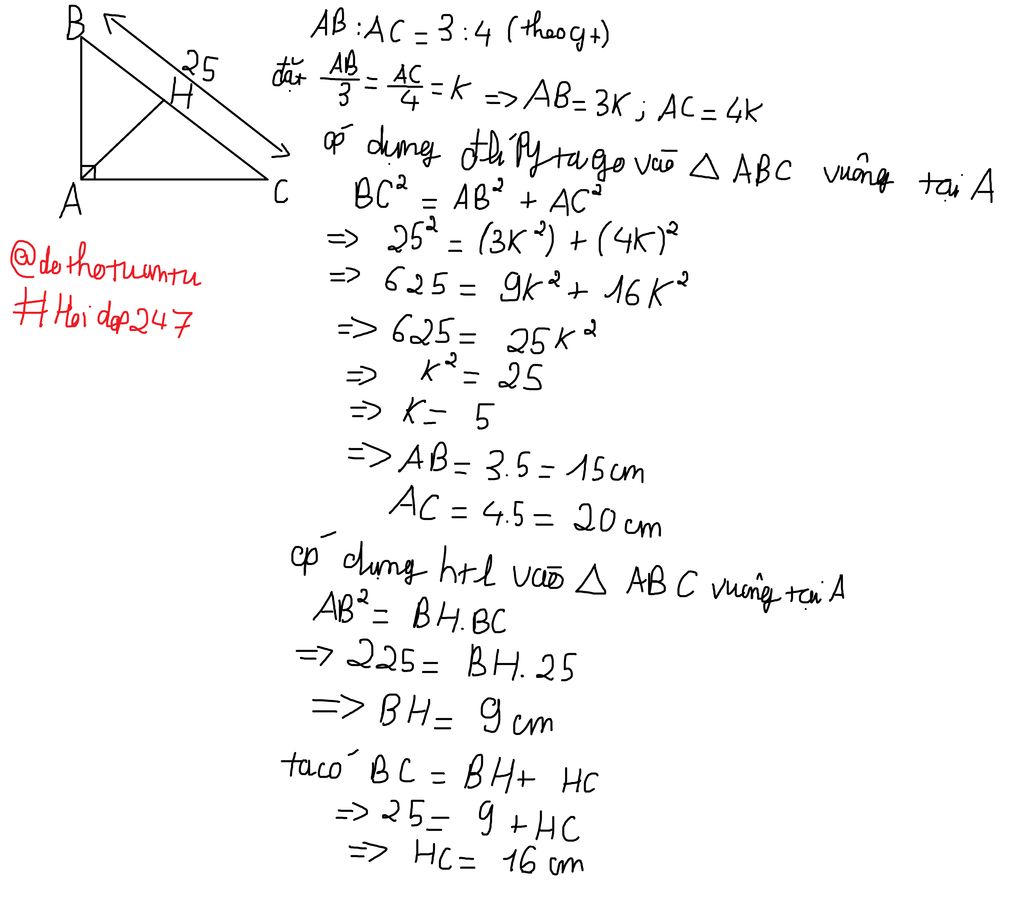 B
25
H
A
C
@dethotuantu
#Hoidap247
AB : AC = 3 : 4 (theo gt)
đặt AB/3 = AC/4 = K => AB = 3K ; AC = 4K
áp dụng đlí Pytago vào △ ABC vuông tại A
BC² = AB² + AC²
=> 25² = (3K²) + (4K)²
=> 625 = 9K² + 16K²
=> 625 = 25K²
=> K² = 25
=> K = 5
=> AB = 3.5 = 15cm
AC = 4.5 = 20 cm
áp dụng htl vào △ ABC vuông tại A
AB² = BH.BC
=> 225 = BH.25
=> BH = 9 cm
ta có BC = BH + HC
=> 25 = 9 + HC
=> HC = 16 cm